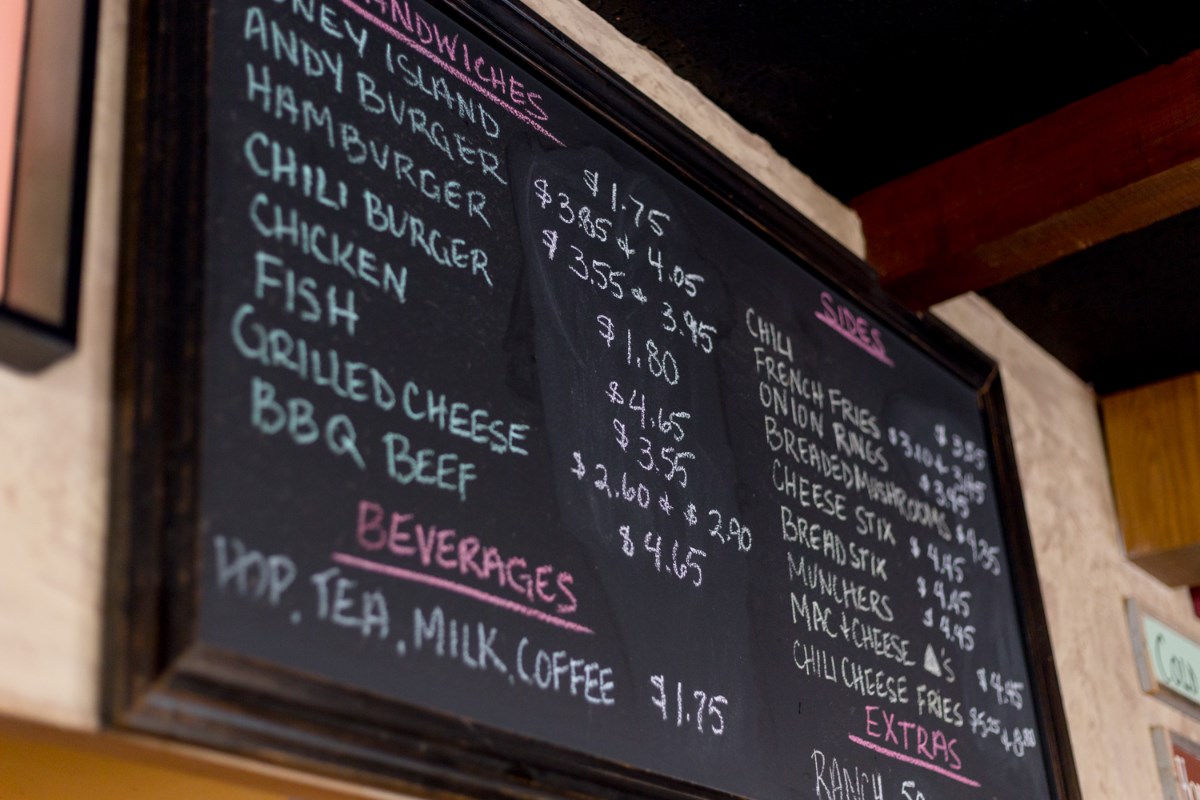 ANDWICHES
ONEY ISLAND $1.75
ANDY BURGER $3.85 & 4.05
HAMBURGER $3.55 & 3.95
CHILI BURGER $1.80
CHICKEN $4.65
FISH $3.55
GRILLED CHEESE $2.60 & $2.90
BBQ BEEF $4.65
BEVERAGES
POP, TEA, MILK, COFFEE $1.75
SIDES
CHILI
FRENCH FRIES $3.10 & 3.45
ONION RINGS
BREADED MUSHROOMS $4.35
CHEESE STIX $4.45
BREADSTIX $4.45
MUNCHERS $4.45
MAC & CHEESE ▲'s $4.45
CHILI CHEESE FRIES
EXTRAS
RANCH